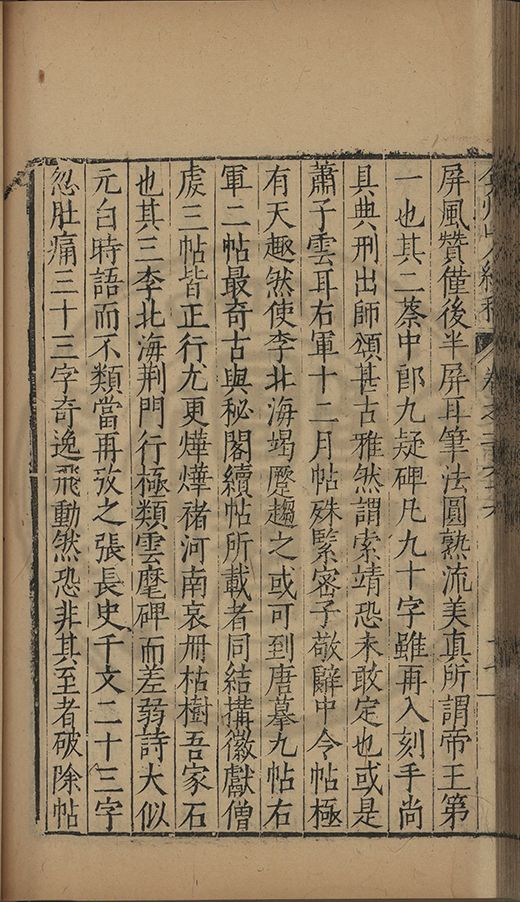 弇州山人續稿 卷之一百六十六
屏風贊僅後半屏耳筆法圓熟流美真所謂帝王第
一也其二蔡中郎九疑碑凡九十字雖再入刻手尚
具典刑出師頌甚古雅然謂索靖恐未敢定也或是
蕭子雲耳右軍十二月帖殊緊密子敬辭中令帖極
有天趣然使李北海竭蹷趨之或可到唐摹九帖右
軍二帖最奇古與秘閣續帖所載者同結搆徽獻僧
虔三帖皆正行尤更燁燁禇河南哀冊枯樹吾家石
也其三李北海荆門行極類雲麾碑而差弱詩大似
元白時語而不類當再攷之張長史千文二十三字
忽肚痛三十三字奇逸飛動然恐非其至者破除帖